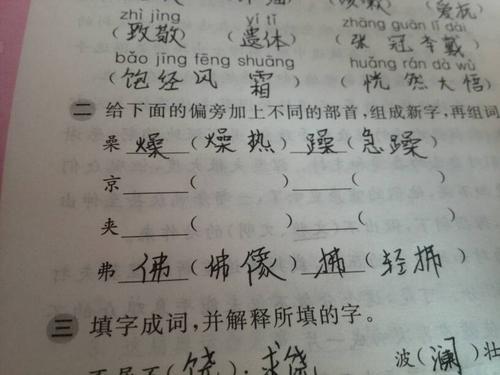 zhì jìng yí tǐ zhāng guān lǐ dài
(致敬) (遗体) (张冠李戴)
bǎo jīng fēng shuāng huǎng rán dà wù
(饱经风霜) (恍然大悟)
二 给下面的偏旁加上不同的部首,组成新字,再组词
喿 燥(燥热) 躁(急躁)
京____( )____( )
夹____( )____( )
弗 佛(佛像) 拂(轻拂)
三 填字成词,并解释所填的字。
(饶):求饶 波(澜)壮